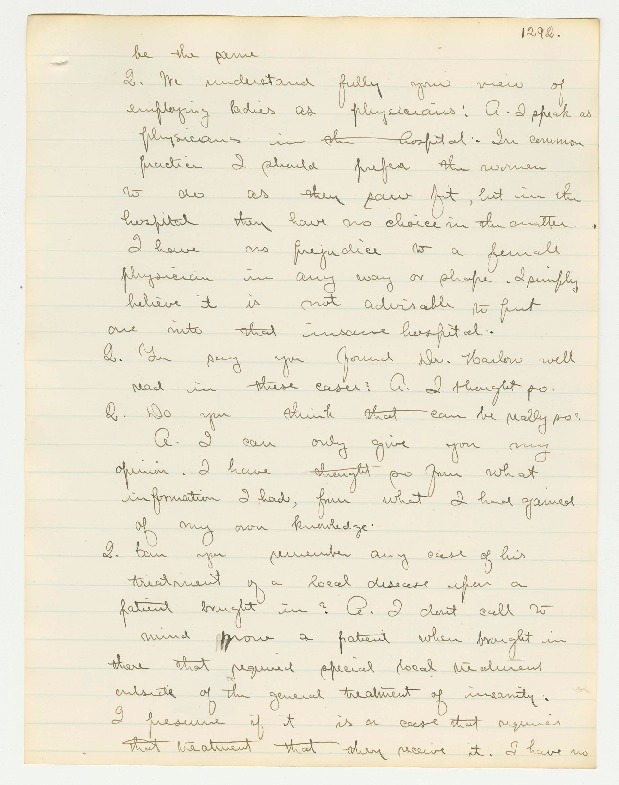 1292.
be the same
Q. We understand fully your view of
employing ladies as physicians? A. I speak as
physicians in the hospital. In common
practice I should prefer the women
to do as they saw fit, but in the
hospital they have no choice in the matter.
I have no prejudice to a female
physician in any way or shape. I simply
believe it is not advisable to put
one into that insane hospital.
Q. You say you found Dr. Harlow well
read in these cases? A. I thought so.
Q. Do you think that can be really so?
A. I can only give you my
opinion. I have thought so from what
information I had, from what I had gained
of my own knowledge.
Q. Can you remember any case of his
treatment of a local disease upon a
patient brought in? A. I don't call to
mind now a patient when brought in
there that required special local treatment
outside of the general treatment of insanity.
I presume if it is a case that requires
that treatment that they receive it. I have no